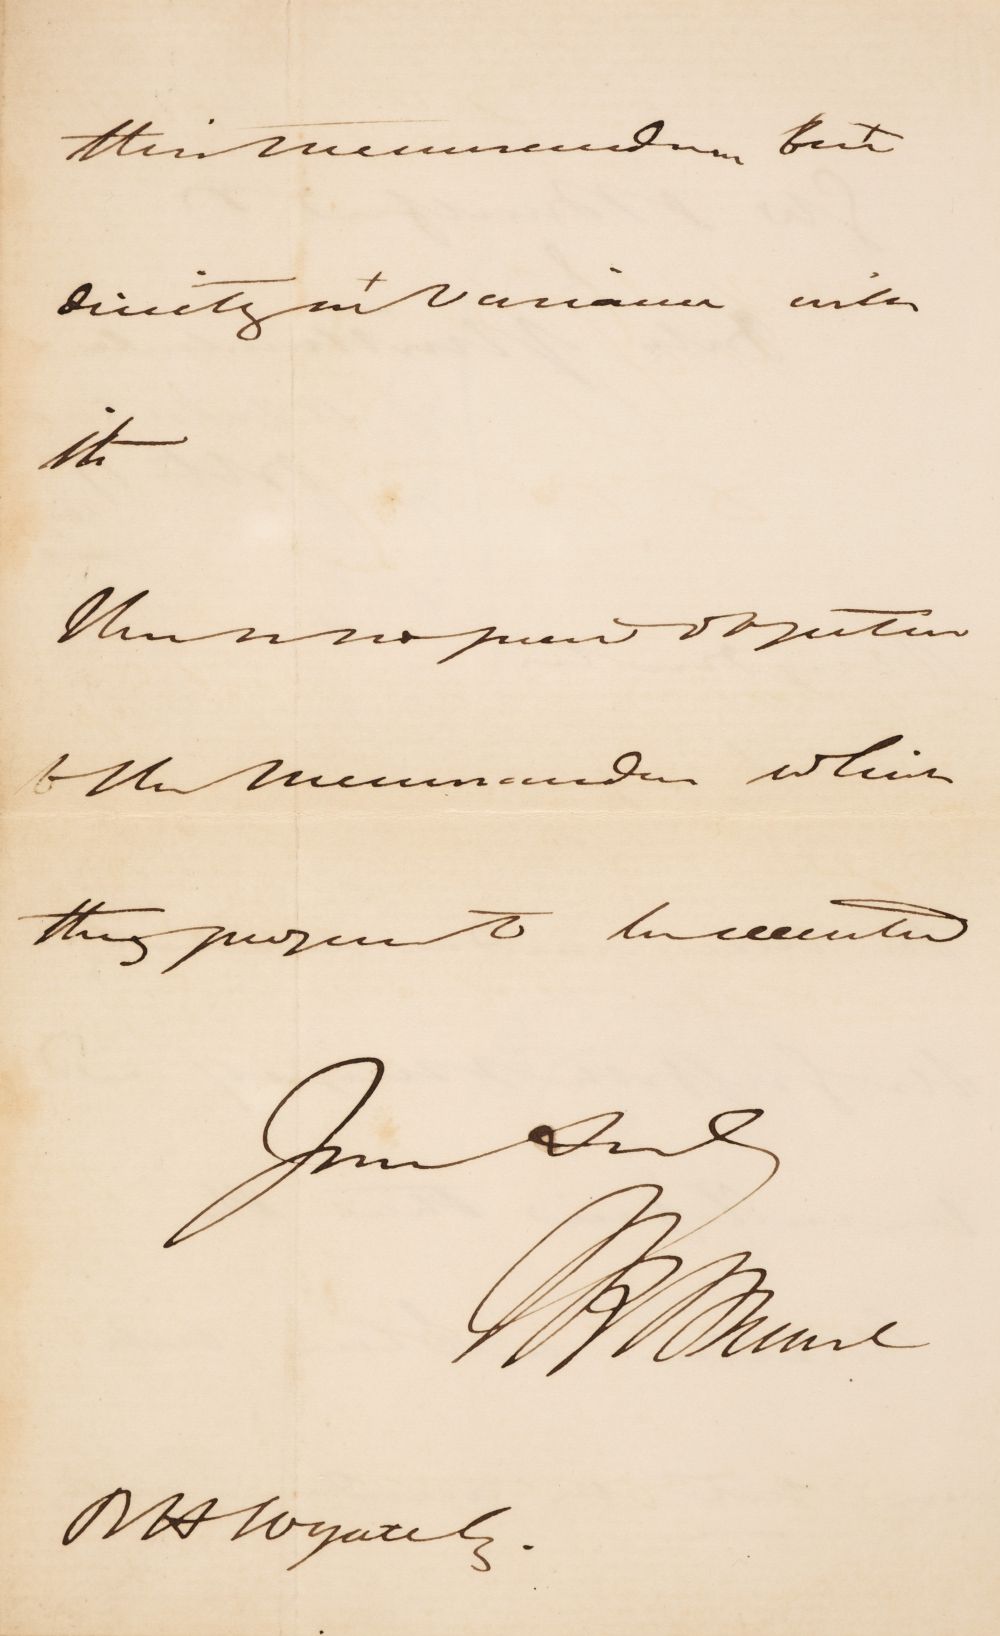 this memorandum but
directly at variance with
it
There is no general objection
to the memorandum which
they propose to be executed
Yours truly
I K Brunel
R H Wyatt Esq.